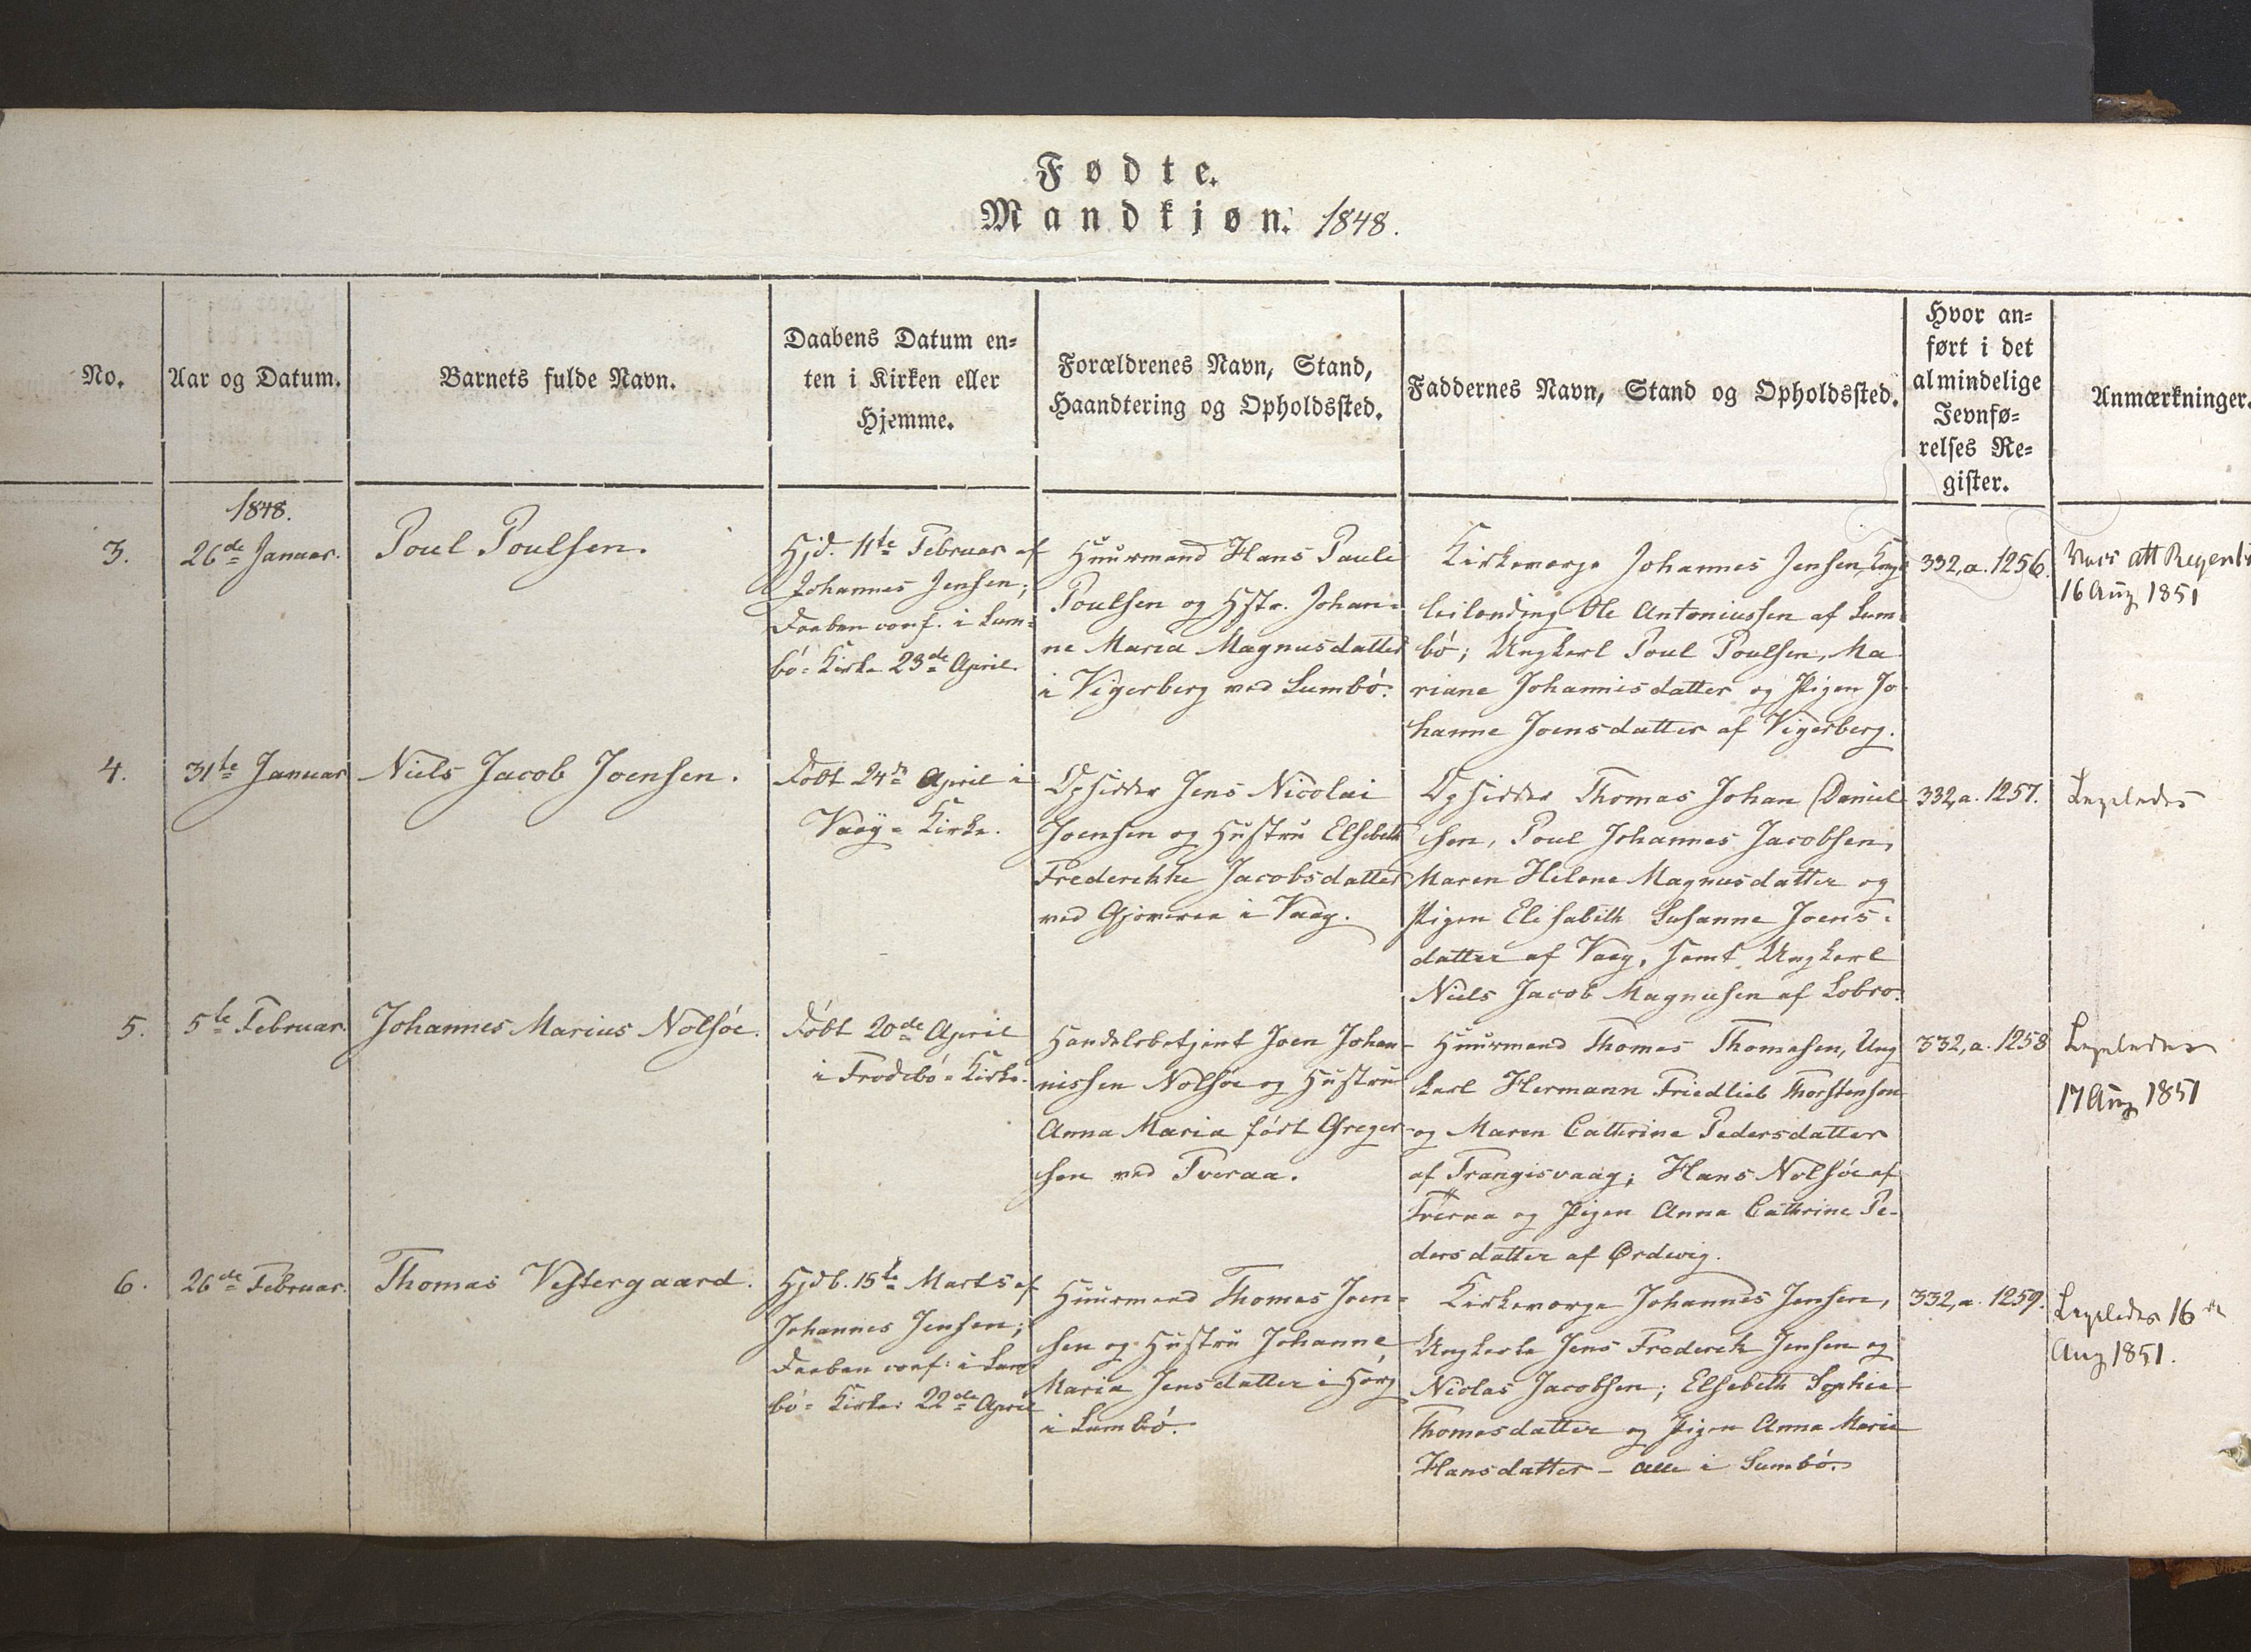 Fødte.
Mandkjøn. 1848.
No.
Aar og Datum.
Barnets fulde Navn.
Daabens Datum en=
ten i Kirken eller
Hjemme.
Forældrenes Navn, Stand,
Haandtering og Opholdssted.
Faddernes Navn, Stand og Opholdssted.
Hvor an=
ført i det
almindelige
Jevnfø=
relses Re=
gister.
Anmærkninger.
1848.
3.
26de Januar.
Poul Poulsen.
Hjd. 11te Februar af
Johannes Jensen;
Daaben conf. i Sum=
bó= Kirke 23de April.
Huusmand Hans Pauli
Poulsen og Hstr. Johan=
ne Maria Magnusdatter
i Vigerberg ved Sumbó.
Kirkeværge Johannes Jensen,
leilending Ole Antoniussen af Sum=
bó; Ungkarl Poul Poulsen, Ma
riane Johannisdatter og Pigen Jo
hanne Joensdatter af Vigerberg.
332,a. 1256.
16 Aug 1851
4.
31te Januar
Niels Jacob Joensen.
Døbt 24de April i
Vaag= Kirke.
Opsidder Jens Nicolai
Joensen og Hustru Elsebeth
Frederikke Jacobsdatter
ved Gjoveraa i Vaag.
Opsidder Thomas Johan Daniel
sen, Poul Johannes Jacobsen,
Maren Helene Magnusdatter og
Pigen Elisabeth Susanne Joens=
datter af Vaag, samt Ungkarl
Niels Jacob Magnussen af Lobro.
332,a. 1257.
Ligeledes
5.
5te Februar.
Johannes Marius Nolsóe.
Døbt 20de April
i Frodebó= Kirke.
Handelsbetjent Joen Johan=
nissen Nolsóe og Hustru
Anna Maria fódt Greger
sen ved Tveraa.
Huusmand Thomas Thomasen, Ung
karl Hermann Friedlieb Thorstensen
og Maren Cathrine Pedersdatter
af Trangisvaag; Hans Nolsóe af
Tveraa og Pigen Anna Cathrine Pe=
dersdatter af Ørdevig.
332,a. 1258
Ligeledes
17 Aug 1851
6.
26de Februar.
Thomas Vestergaard.
Hjdb. 15de Marts af
Johannes Jensen;
Daaben conf: i Sum=
bó= Kirke: 22de April
Huusmand Thomas Joen=
sen og Hustru Johanne
Maria Jensdatter i Hórg
i Sumbó.
Kirkeværge Johannes Jensen,
Ungkarle Jens Frederik Jensen og
Niclas Jacobsen; Elsebeth Sophie
Thomasdatter og Pigen Anna Marie
Hansdatter – alle i Sumbó.
332,a. 1259.
Ligeledes 16de
Aug 1851.